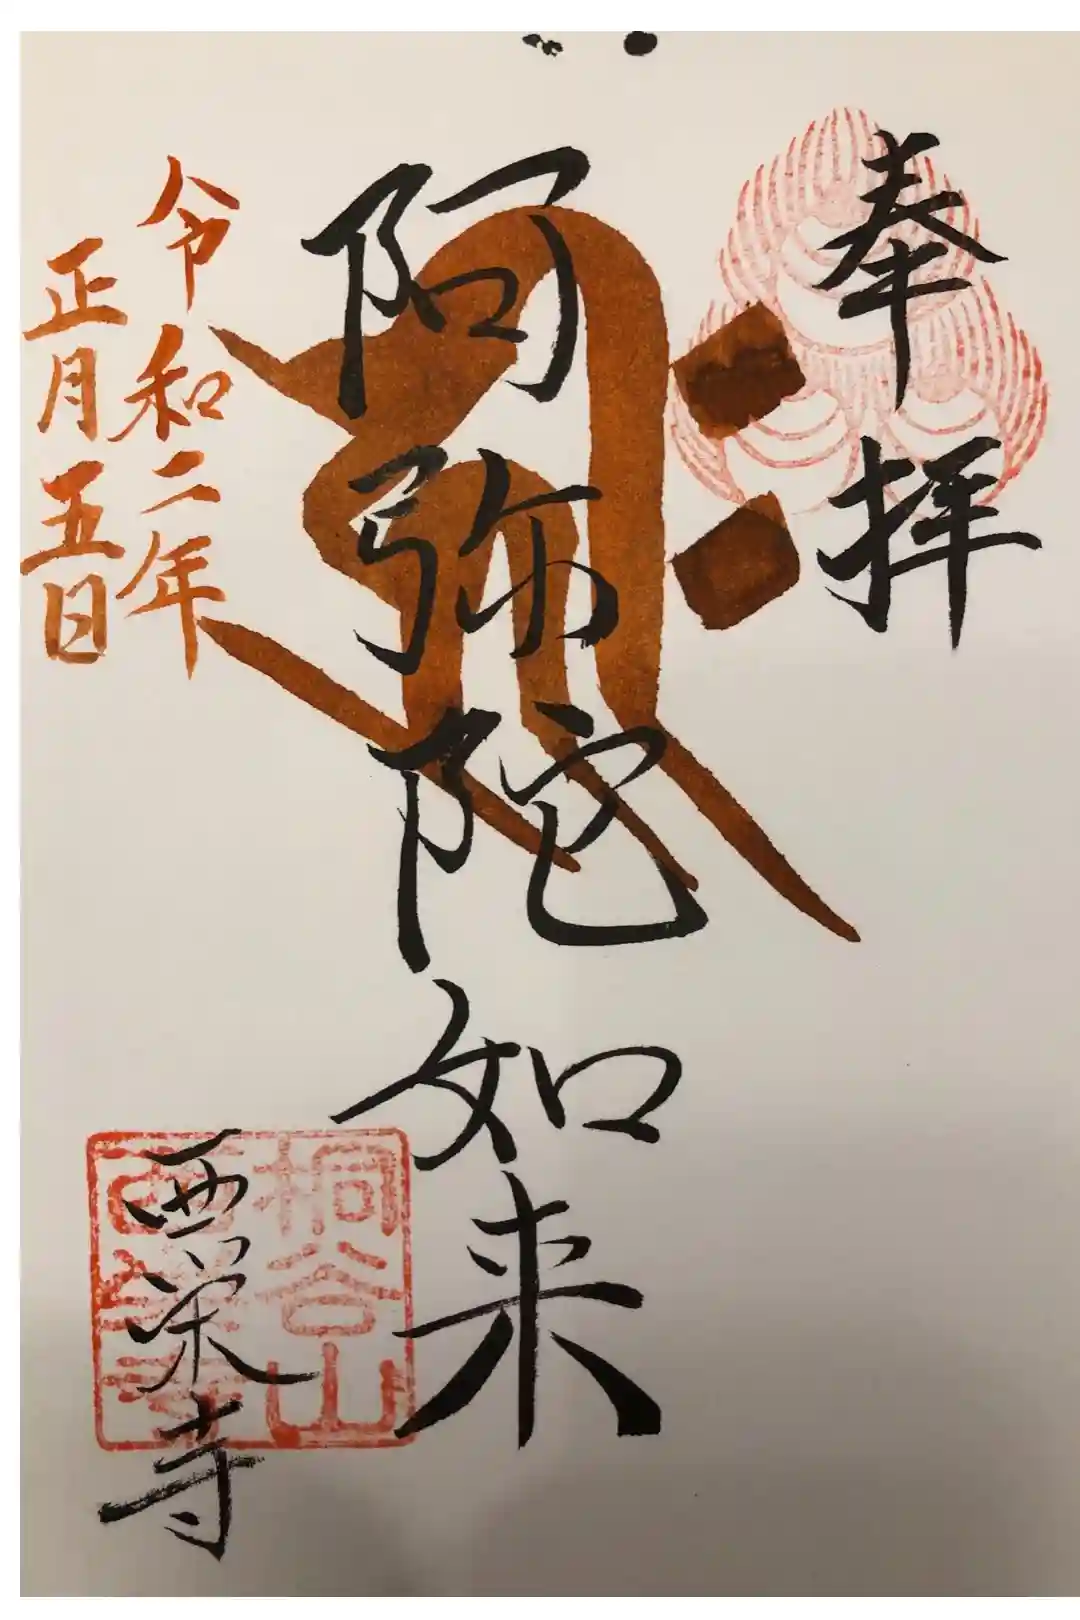 奉拝
阿弥陀如来
令和二年
正月五日
桐谷山
西栄寺
西栄寺